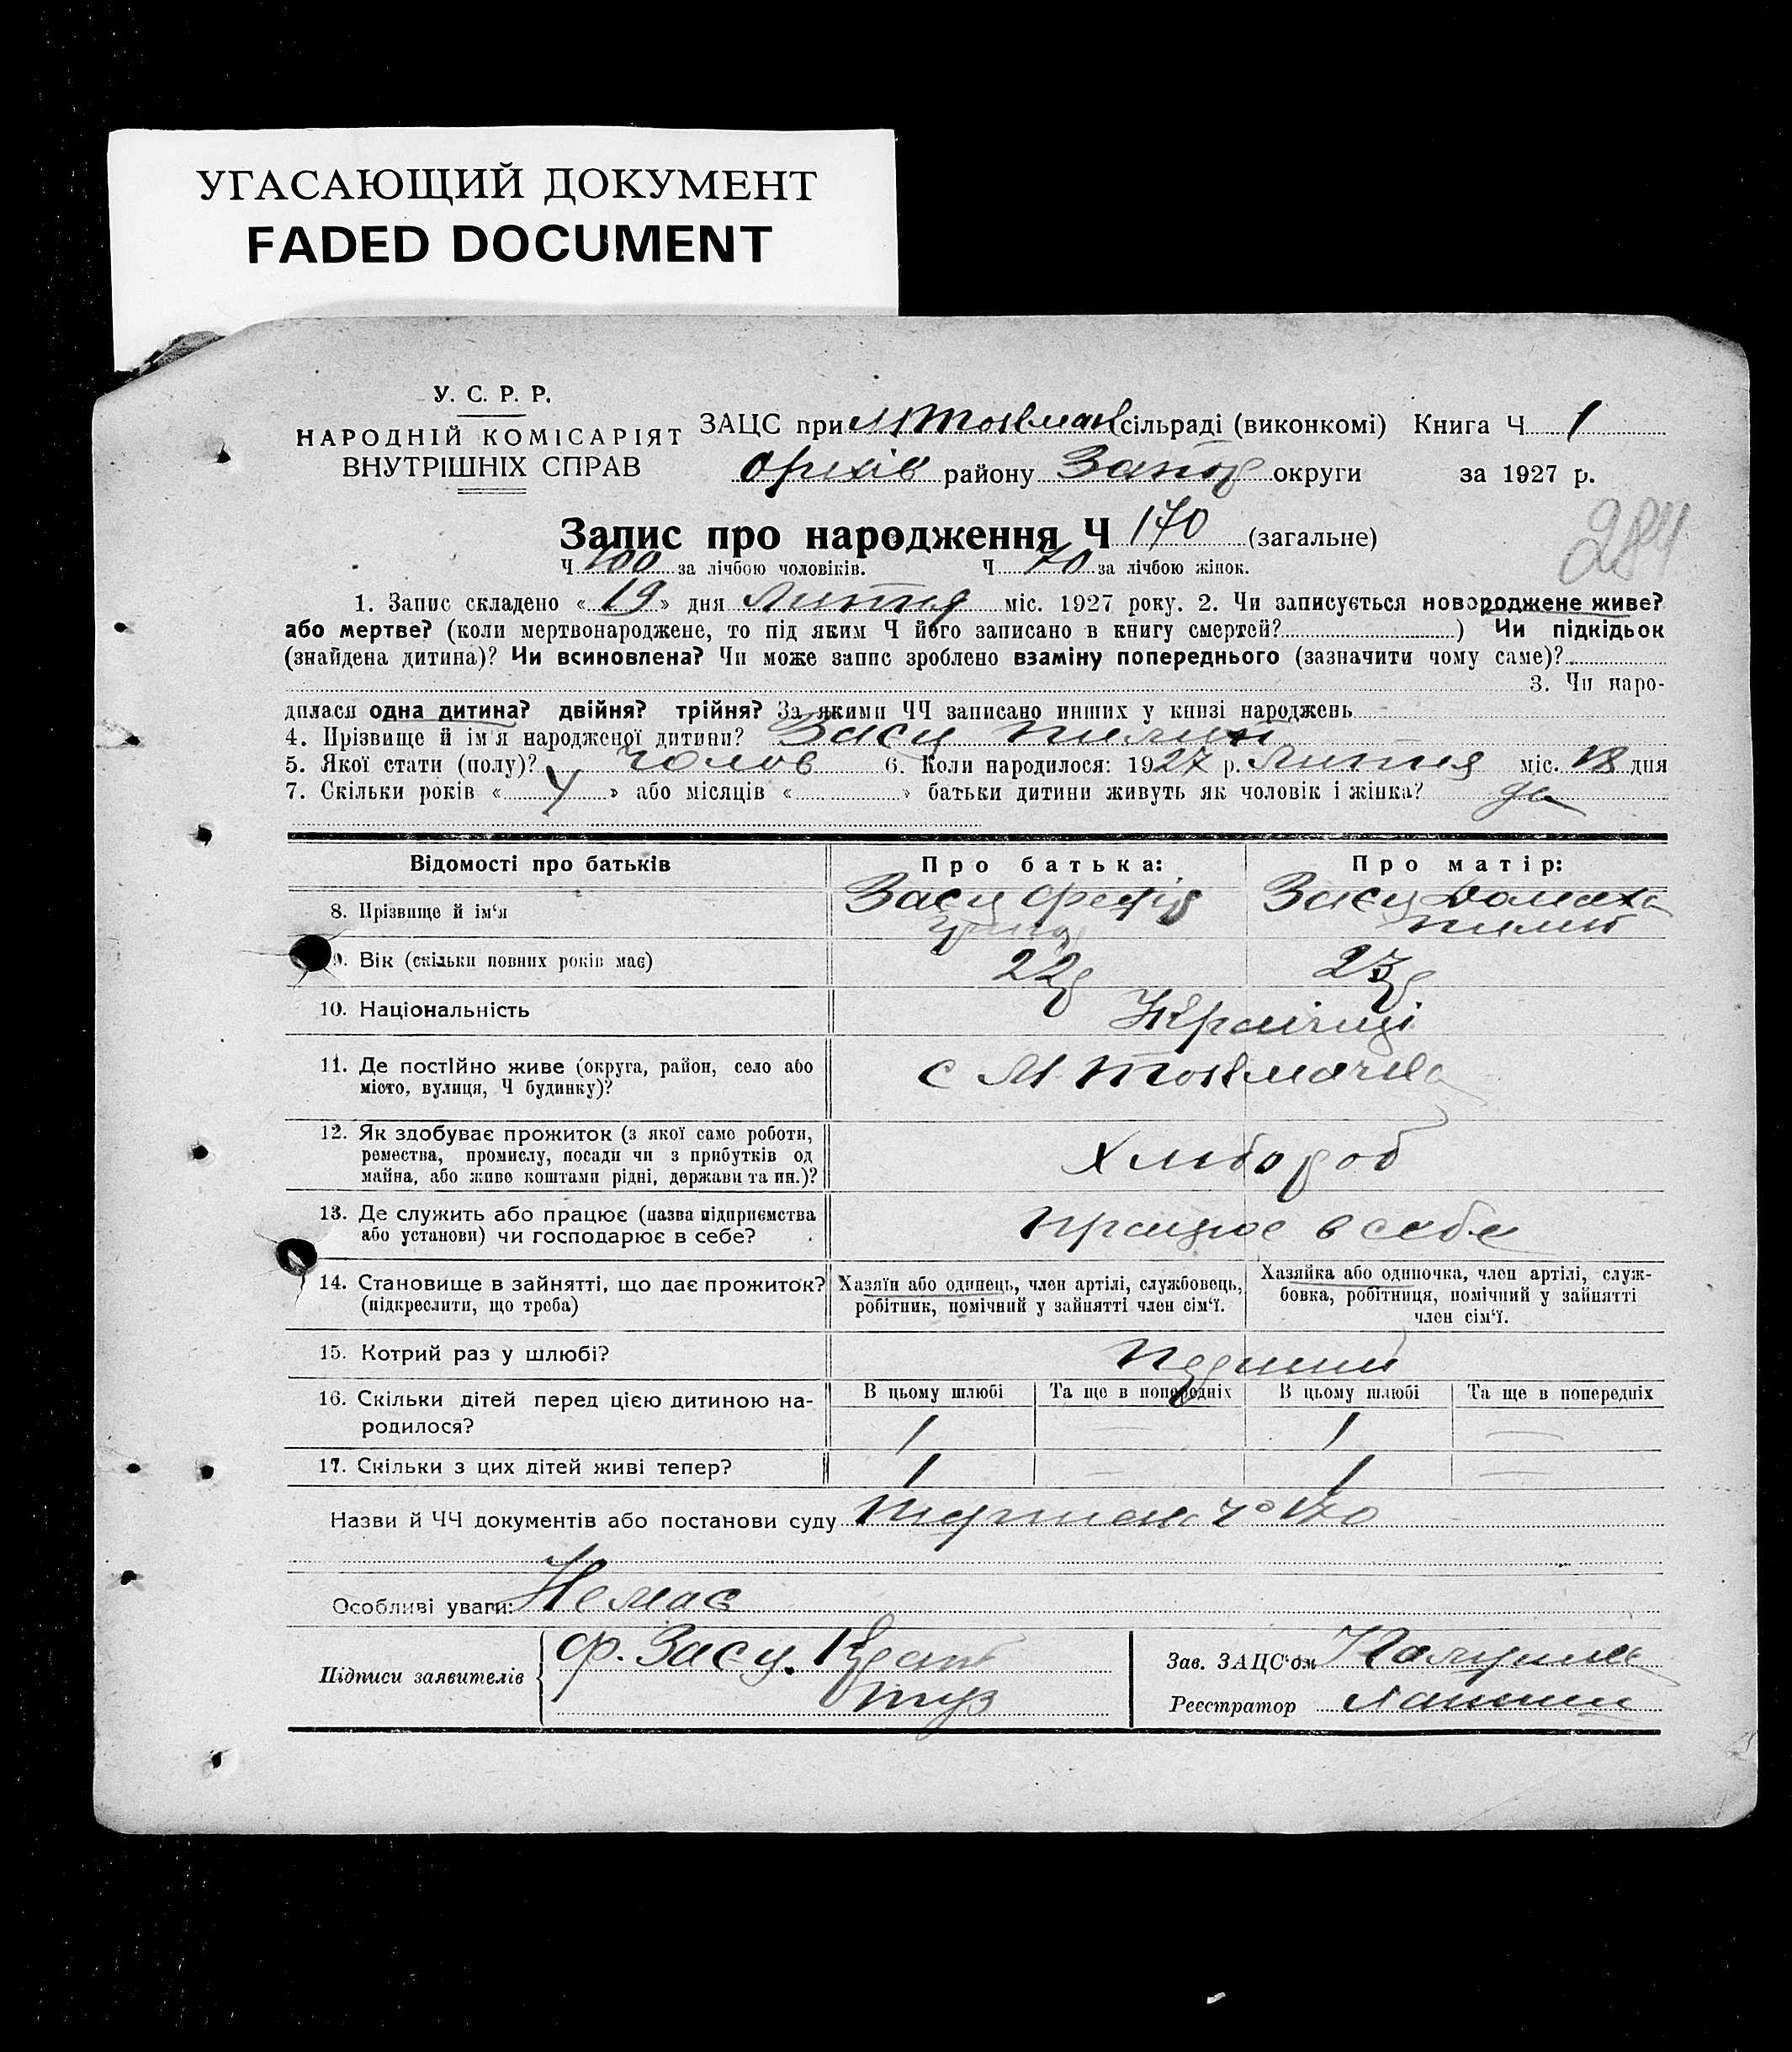 УГАСАЮЩИЙ ДОКУМЕНТ
FADED DOCUMENT
У. С. Р. Р.
НАРОДНІЙ КОМІСАРІЯТ
ВНУТРІШНІХ СПРАВ
ЗАЦС при М Токмач сільраді (виконкомі) Книга Ч 1
Оріхів району Запор округи за 1927 р.
284
Запис про народження Ч 170 (загальне)
Ч 100 за лічбою чоловіків. Ч 70 за лічбою жінок.
1. Запис складено « 19 » дня Липня міс. 1927 року. 2. Чи записується новороджене живе?
або мертве? (коли мертвонароджене, то під яким Ч його записано в книгу смертей?) Чи підкідьок
(знайдена дитина)? Чи всиновлена? Чи може запис зроблено взаміну попереднього (зазначити чому саме)?
3. Чи наро-
дилася одна дитина? двійня? трійня? За якими ЧЧ записано инших у книзі народжень
4. Прізвище й ім'я народженої дитини? Засу
5. Якої стати (полу)? Чолов 6. Коли народилося: 1927 р. Липня міс. 18 дня
7. Скільки років « 4 » або місяців « » батьки дитини живуть як чоловік і жінка? да
Відомості про батьків Про батька: Про матір:
8. Прізвище й ім'я Засу Засу Домаха
9. Вік (скільки повних років має) 22р 23р
10. Національність Українці
11. Де постійно живе (округа, район, село або
місто, вулиця, Ч будинку)? с М Токмачка
12. Як здобуває прожиток (з якої саме роботи,
ремества, промислу, посади чи з прибутків од
майна, або живе коштами рідні, держави та ин.)? Хлібороб
13. Де служить або працює (назва підприємства
або установи) чи господарює в себе? працює в себе
14. Становище в зайнятті, що дає прожиток?
(підкреслити, що треба)
Хазяїн або одинець, член артілі, службовець,
робітник, помічний у зайнятті член сім'ї.
Хазяйка або одиночка, член артілі, служ-
бовка, робітниця, помічний у зайнятті
член сім'ї.
15. Котрий раз у шлюбі? Перший
16. Скільки дітей перед цією дитиною на-
родилося?
В цьому шлюбі Та ще в попередніх В цьому шлюбі Та ще в попередніх
1 — 1 —
17. Скільки з цих дітей живі тепер? 1 — 1 —
Назви й ЧЧ документів або постанови суду 170
Особливі уваги: Немає
Підписи заявителів Ф. Засу.
Зав. ЗАЦС'ом
Реєстратор